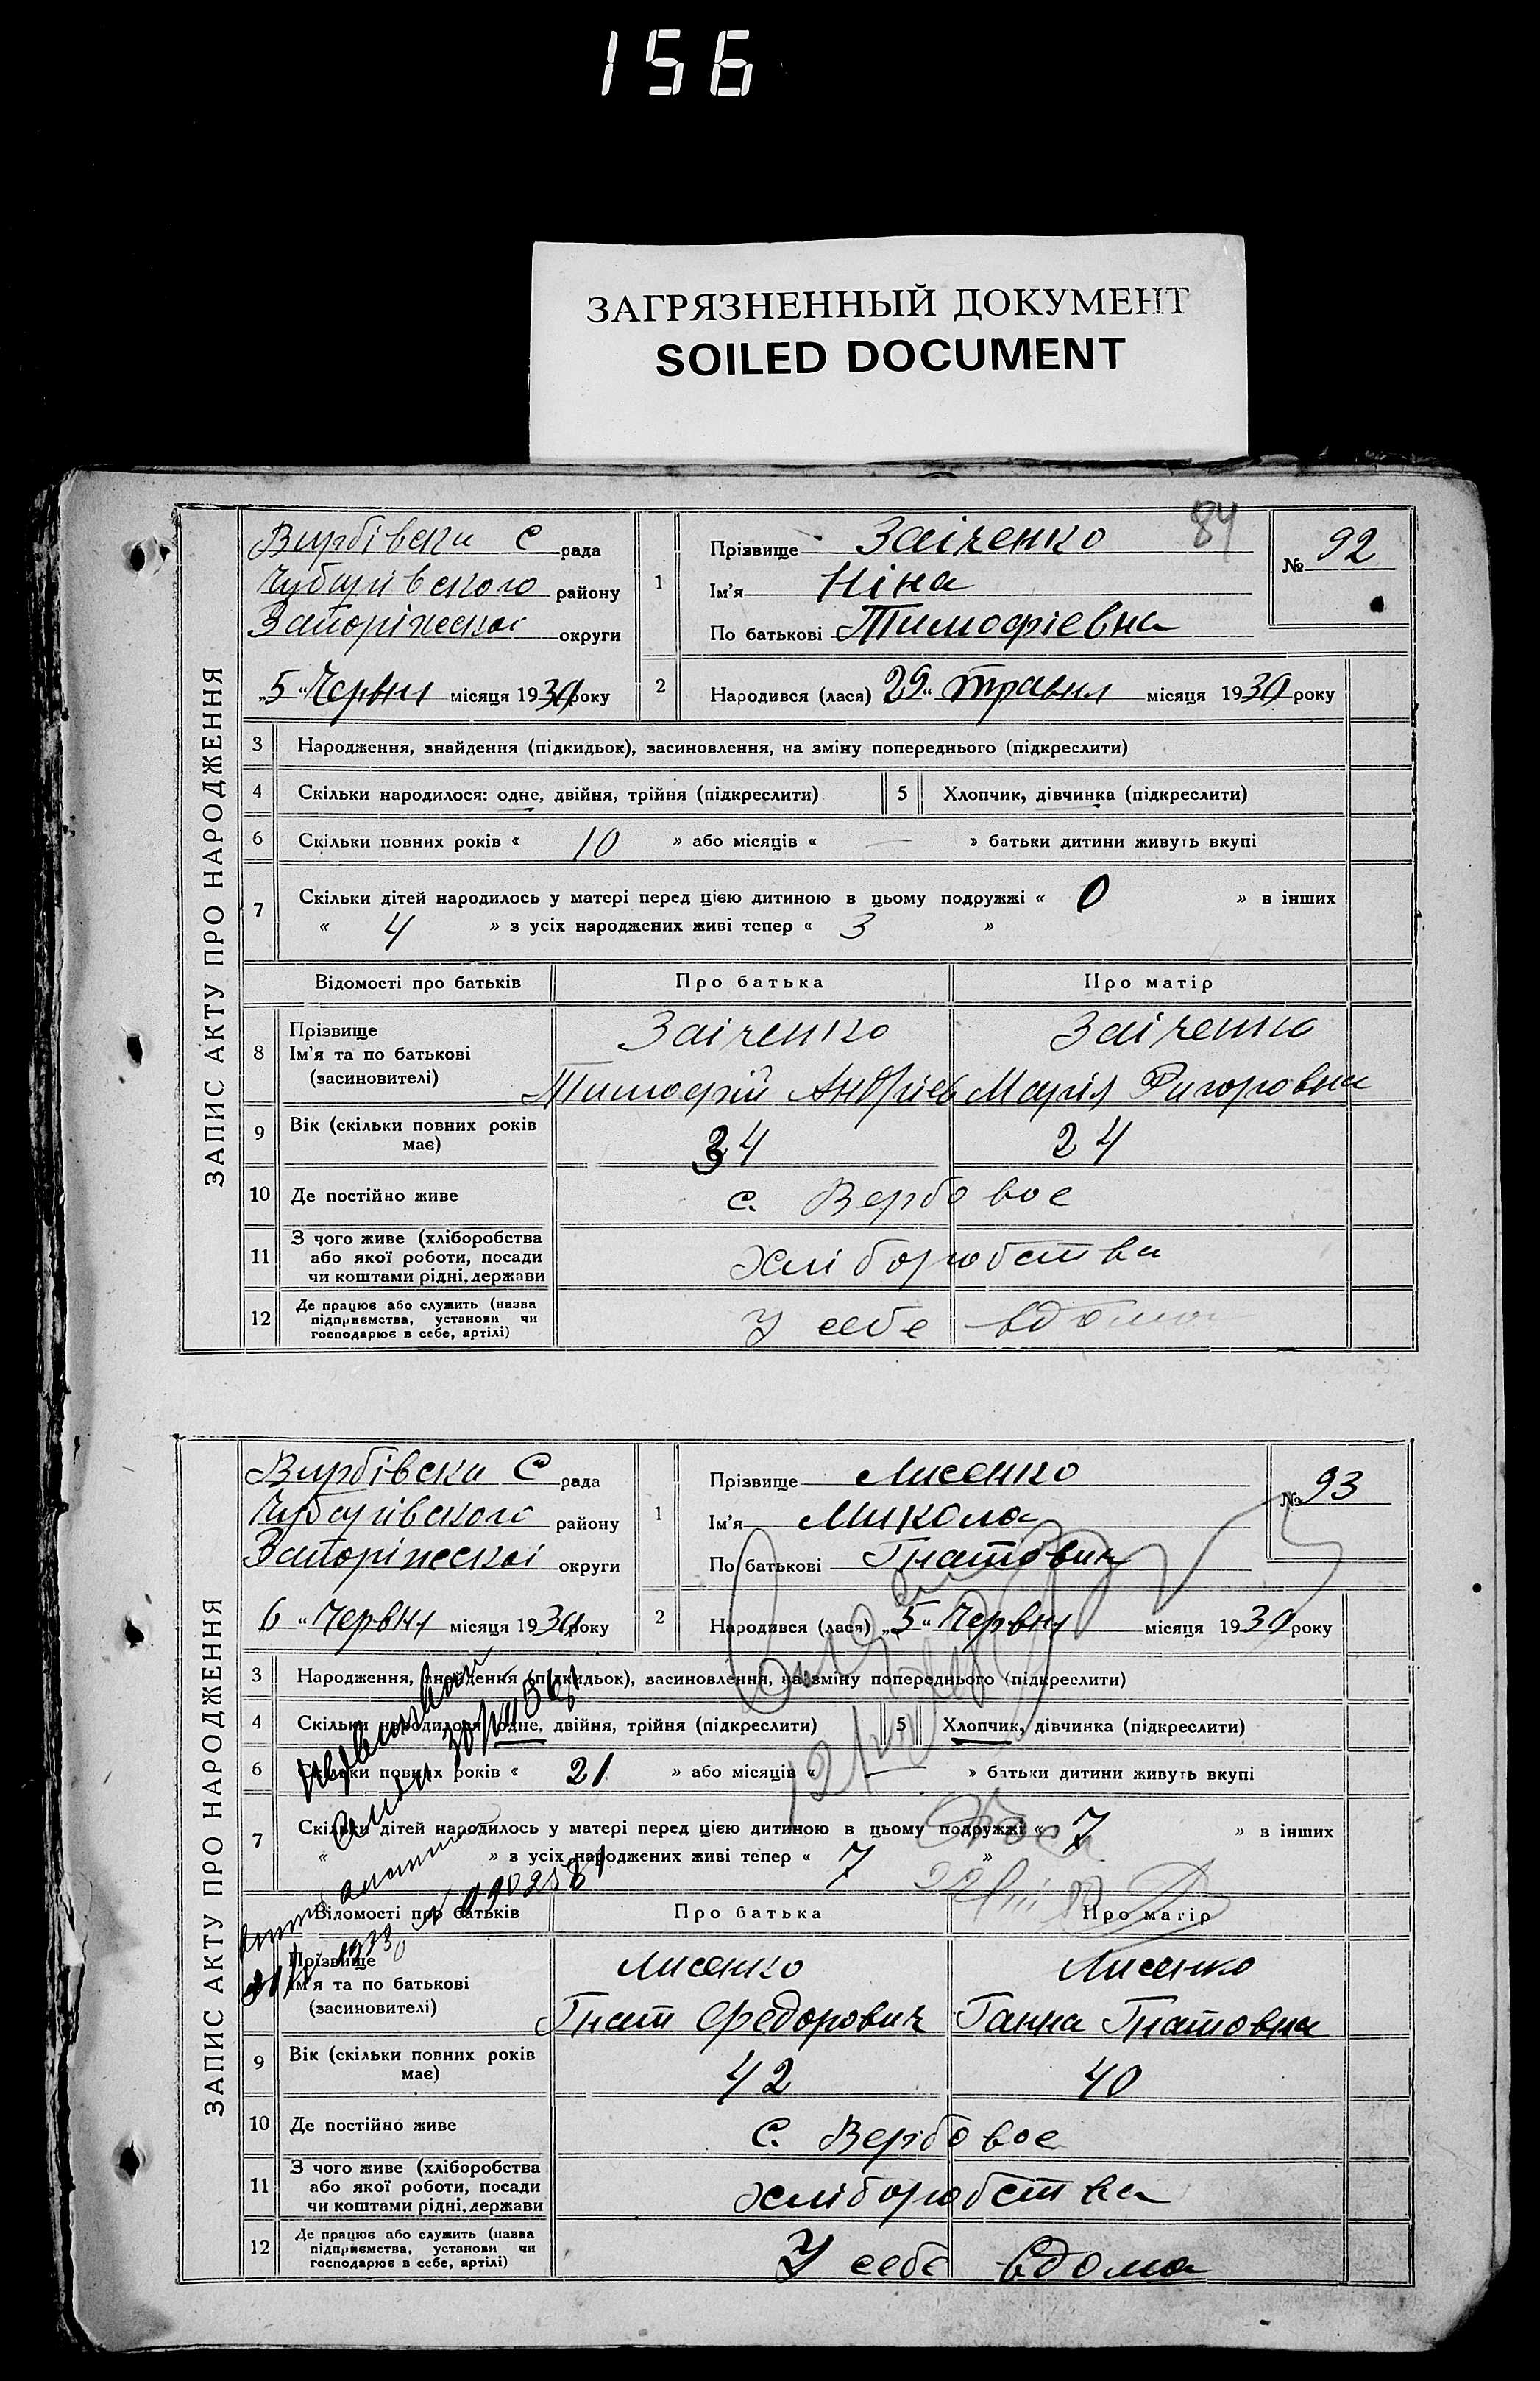 156
ЗАГРЯЗНЕННЫЙ ДОКУМЕНТ
SOILED DOCUMENT
84
ЗАПИС АКТУ ПРО НАРОДЖЕННЯ
Вирбівска С рада
Чубарівского району
Запоріжескоі округи
„5“ Червня місяця 1930 року
1 Прізвище Заіченко
Ім'я Ніна
По батькові Тимофіевна
№ 92
2 Народився (лася) 29 “ травня місяця 1930 року
3 Народження, знайдення (підкидьок), засиновлення, на зміну попереднього (підкреслити)
4 Скільки народилося: одне, двійня, трійня (підкреслити) 5 Хлопчик, дівчинка (підкреслити)
6 Скільки повних років « 10 » або місяців « — » батьки дитини живуть вкупі
7 Скільки дітей народилось у матері перед цією дитиною в цьому подружжі « 0 » в інших
« 4 » з усіх народжених живі тепер « 3 »
Відомості про батьків Про батька Про матір
8 Прізвище
Ім'я та по батькові
(засиновителі)
Заіченко Заіченко
Тимофій Андріев Марія Григоровна
9 Вік (скільки повних років має) 34 24
10 Де постійно живе с. Вербовое
11 З чого живе (хліборобства
або якої роботи, посади
чи коштами рідні, держави
хліборобства
12 Де працює або служить (назва
підприємства, установи чи
господарює в себе, артілі)
У себе вдома
ЗАПИС АКТУ ПРО НАРОДЖЕННЯ
Вирбівска С рада
Чубарівского району
Запоріжескоі округи
6 “ Червня місяця 1930 року
1 Прізвище Лисенко
Ім'я Микола
По батькові Гнатович
№ 93
2 Народився (лася) „5“ Червня місяця 1930 року
3 Народження, знайдення (підкидьок), засиновлення, на зміну попереднього (підкреслити)
4 Скільки народилося: одне, двійня, трійня (підкреслити) 5 Хлопчик, дівчинка (підкреслити)
6 Скільки повних років « 21 » або місяців « — » батьки дитини живуть вкупі
7 Скільки дітей народилось у матері перед цією дитиною в цьому подружжі « 7 » в інших
« » з усіх народжених живі тепер « 7 »
Відомості про батьків Про батька Про матір
Прізвище
Ім'я та по батькові
(засиновителі)
Лисенко Лисенко
Гнат Федорович Ганна Гнатовна
9 Вік (скільки повних років має) 42 40
10 Де постійно живе С. Вербовое
11 З чого живе (хліборобства
або якої роботи, посади
чи коштами рідні, держави
хліборобства
12 Де працює або служить (назва
підприємства, установи чи
господарює в себе, артілі)
У себе вдома